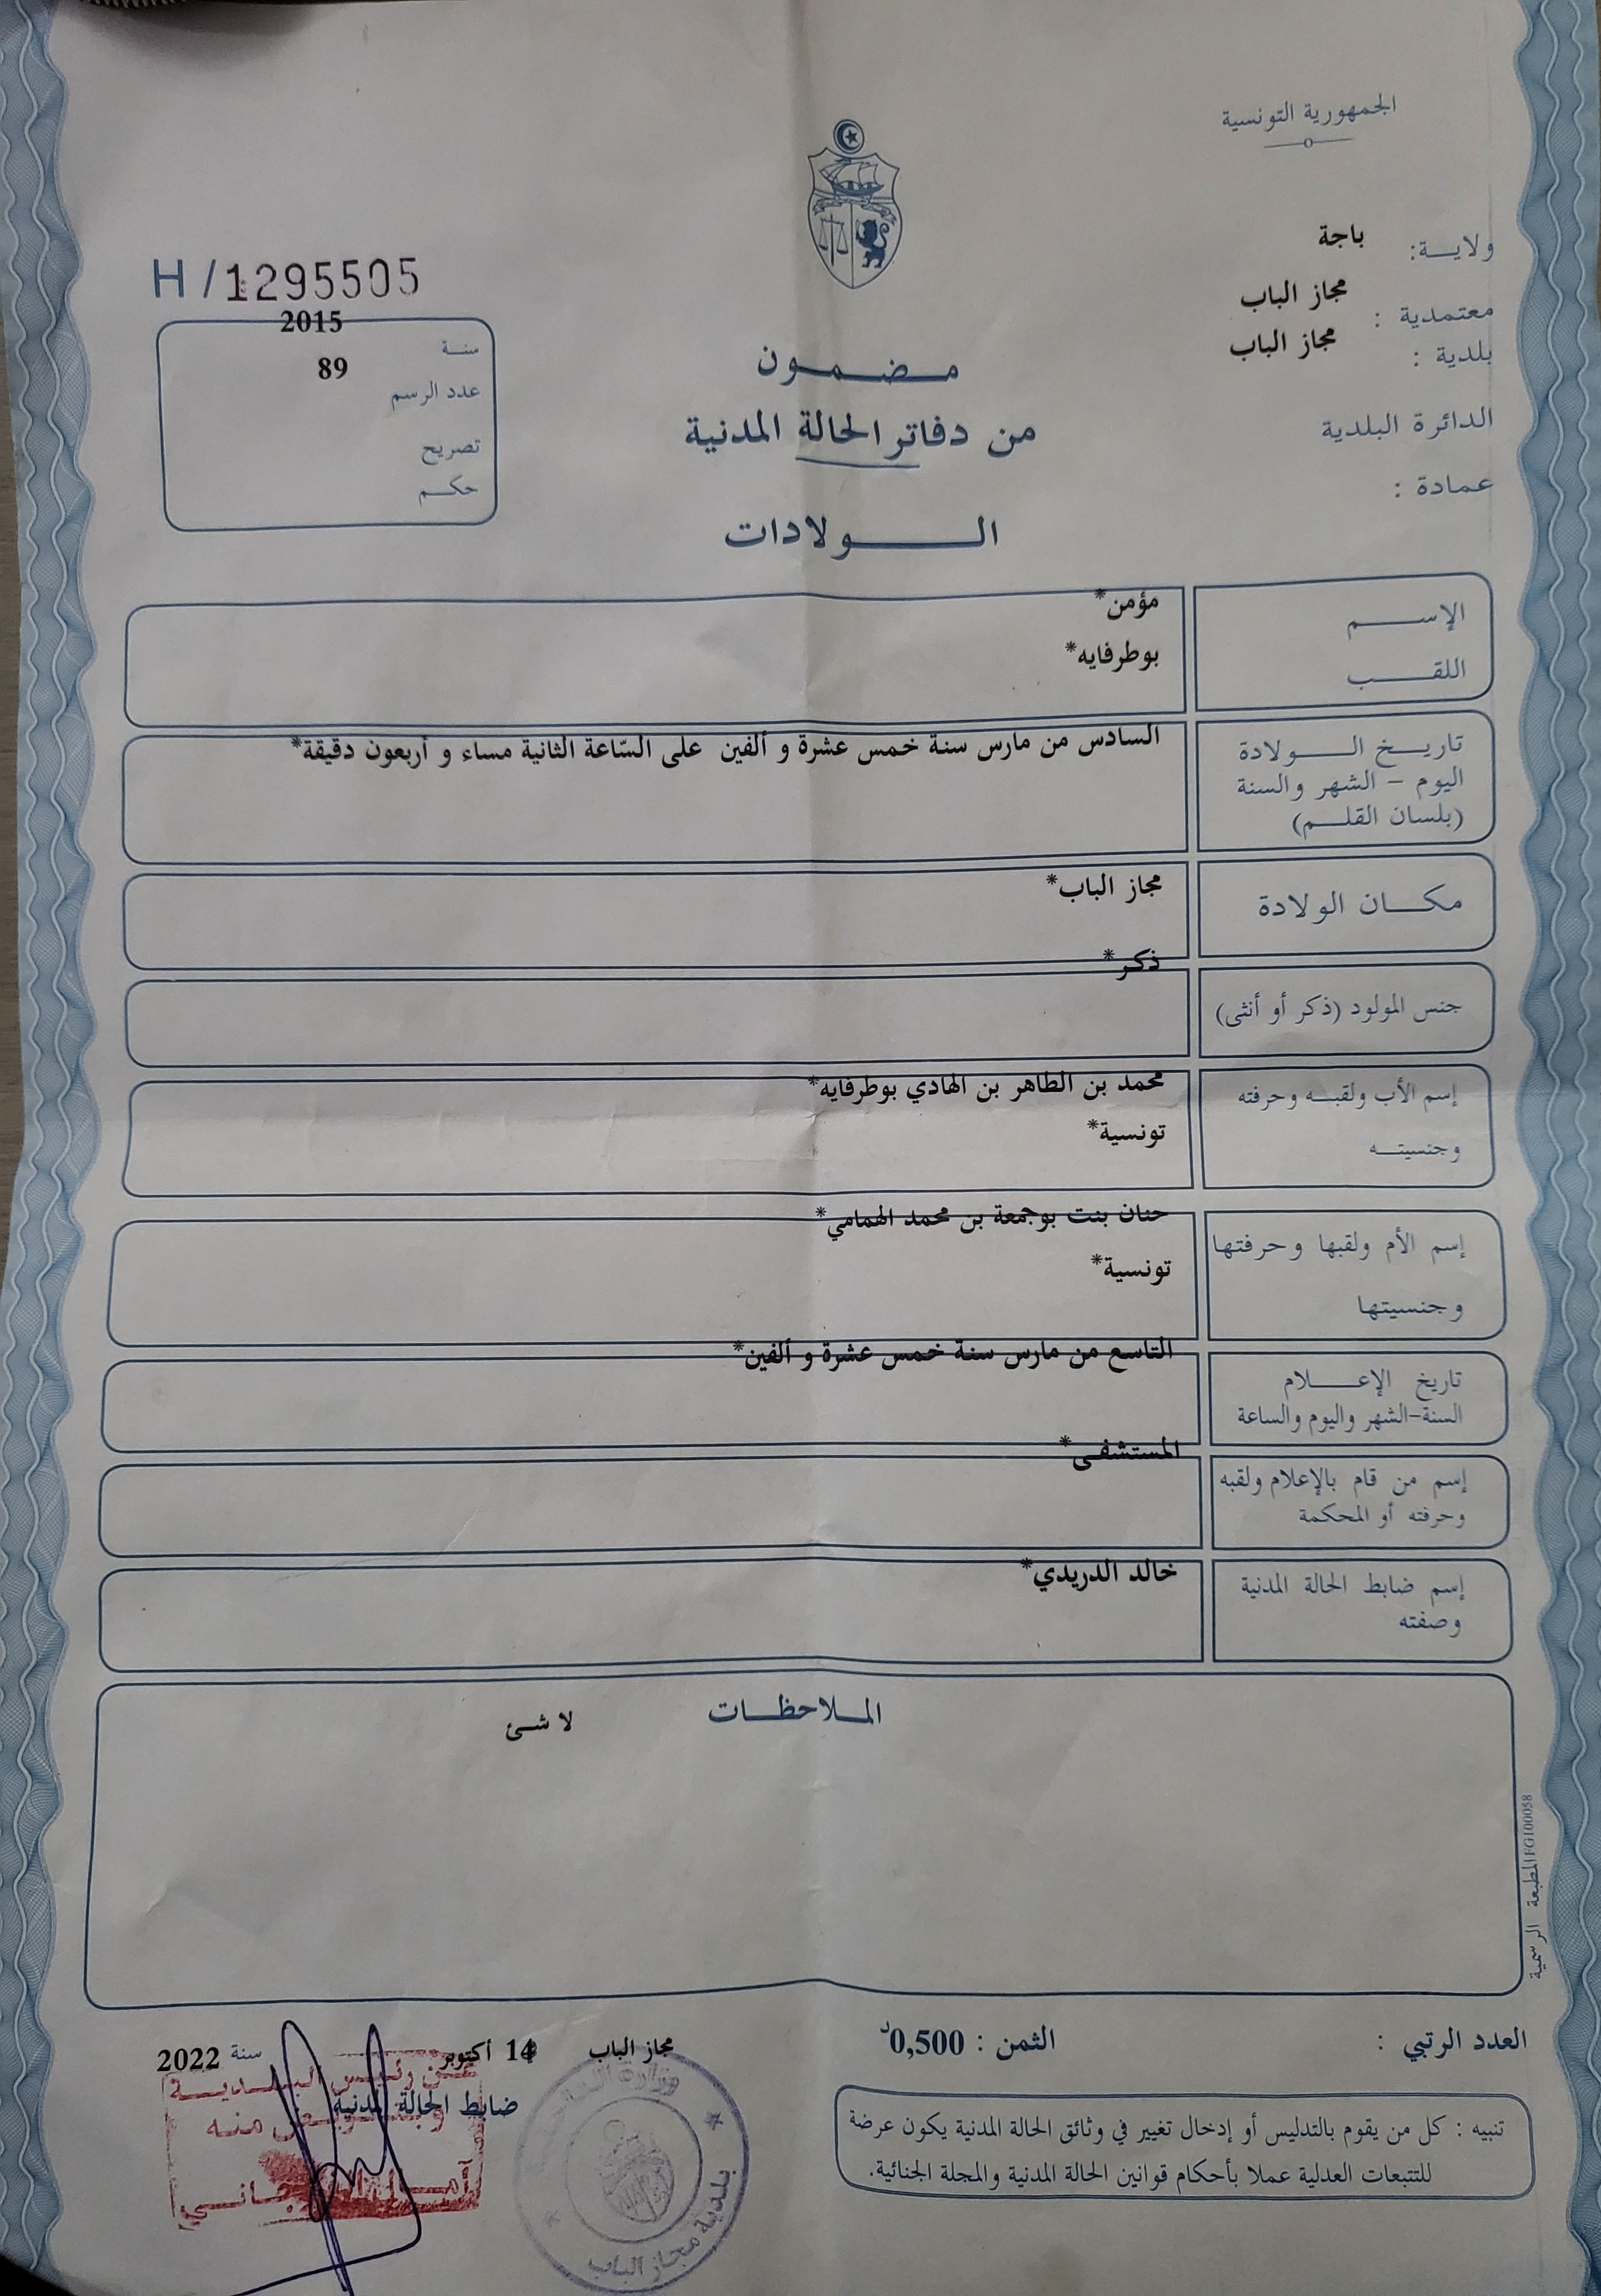 الجمهورية التونسية
ولايـــة: باجة
معتمدية : مجاز الباب
بلدية : مجاز الباب
الدائرة البلدية
عمادة :
H/1295505
2015
سنـة
89
عدد الرسم
تصريح
حكـم
مـضـمـون
من دفاتر الحالة المدنية
الـــولادات
الإســـم
مؤمن*
اللقـــب
بوطرفايه*
تاريــخ الـــولادة
اليوم - الشهر والسنة
(بلسان القلـــم)
السادس من مارس سنة خمس عشرة و ألفين على السّاعة الثانية مساء و أربعون دقيقة*
مكـــان الولادة
مجاز الباب*
جنس المولود (ذكر أو أنثى)
ذكر*
إسم الأب ولقبـــه وحرفته
محمد بن الطاهر بن الهادي بوطرفايه*
وجنسيتـــه
تونسية*
إسم الأم ولقبها وحرفتها
حنان بنت بوجمعة بن محمد الهمامي*
وجنسيتها
تونسية*
تاريخ الإعـــلام
السنة-الشهر واليوم والساعة
التاسع من مارس سنة خمس عشرة و ألفين*
إسم من قام بالإعلام ولقبه
وحرفته أو المحكمة
المستشفى*
إسم ضابط الحالة المدنية
وصفته
خالد الدريدي*
المـلاحظـات
لا شئ
المطبعة الرسمية FG100058
العدد الرتبي :
الثمن : 0,500د
مجاز الباب
أكتوبر
سنة 2022
ضابط الحالة المدنية
عـن رئيـس البـلـديـة
منه
بلدية مجاز الباب
تنبيه : كل من يقوم بالتدليس أو إدخال تغيير في وثائق الحالة المدنية يكون عرضة
للتتبعات العدلية عملا بأحكام قوانين الحالة المدنية والمجلة الجنائية.